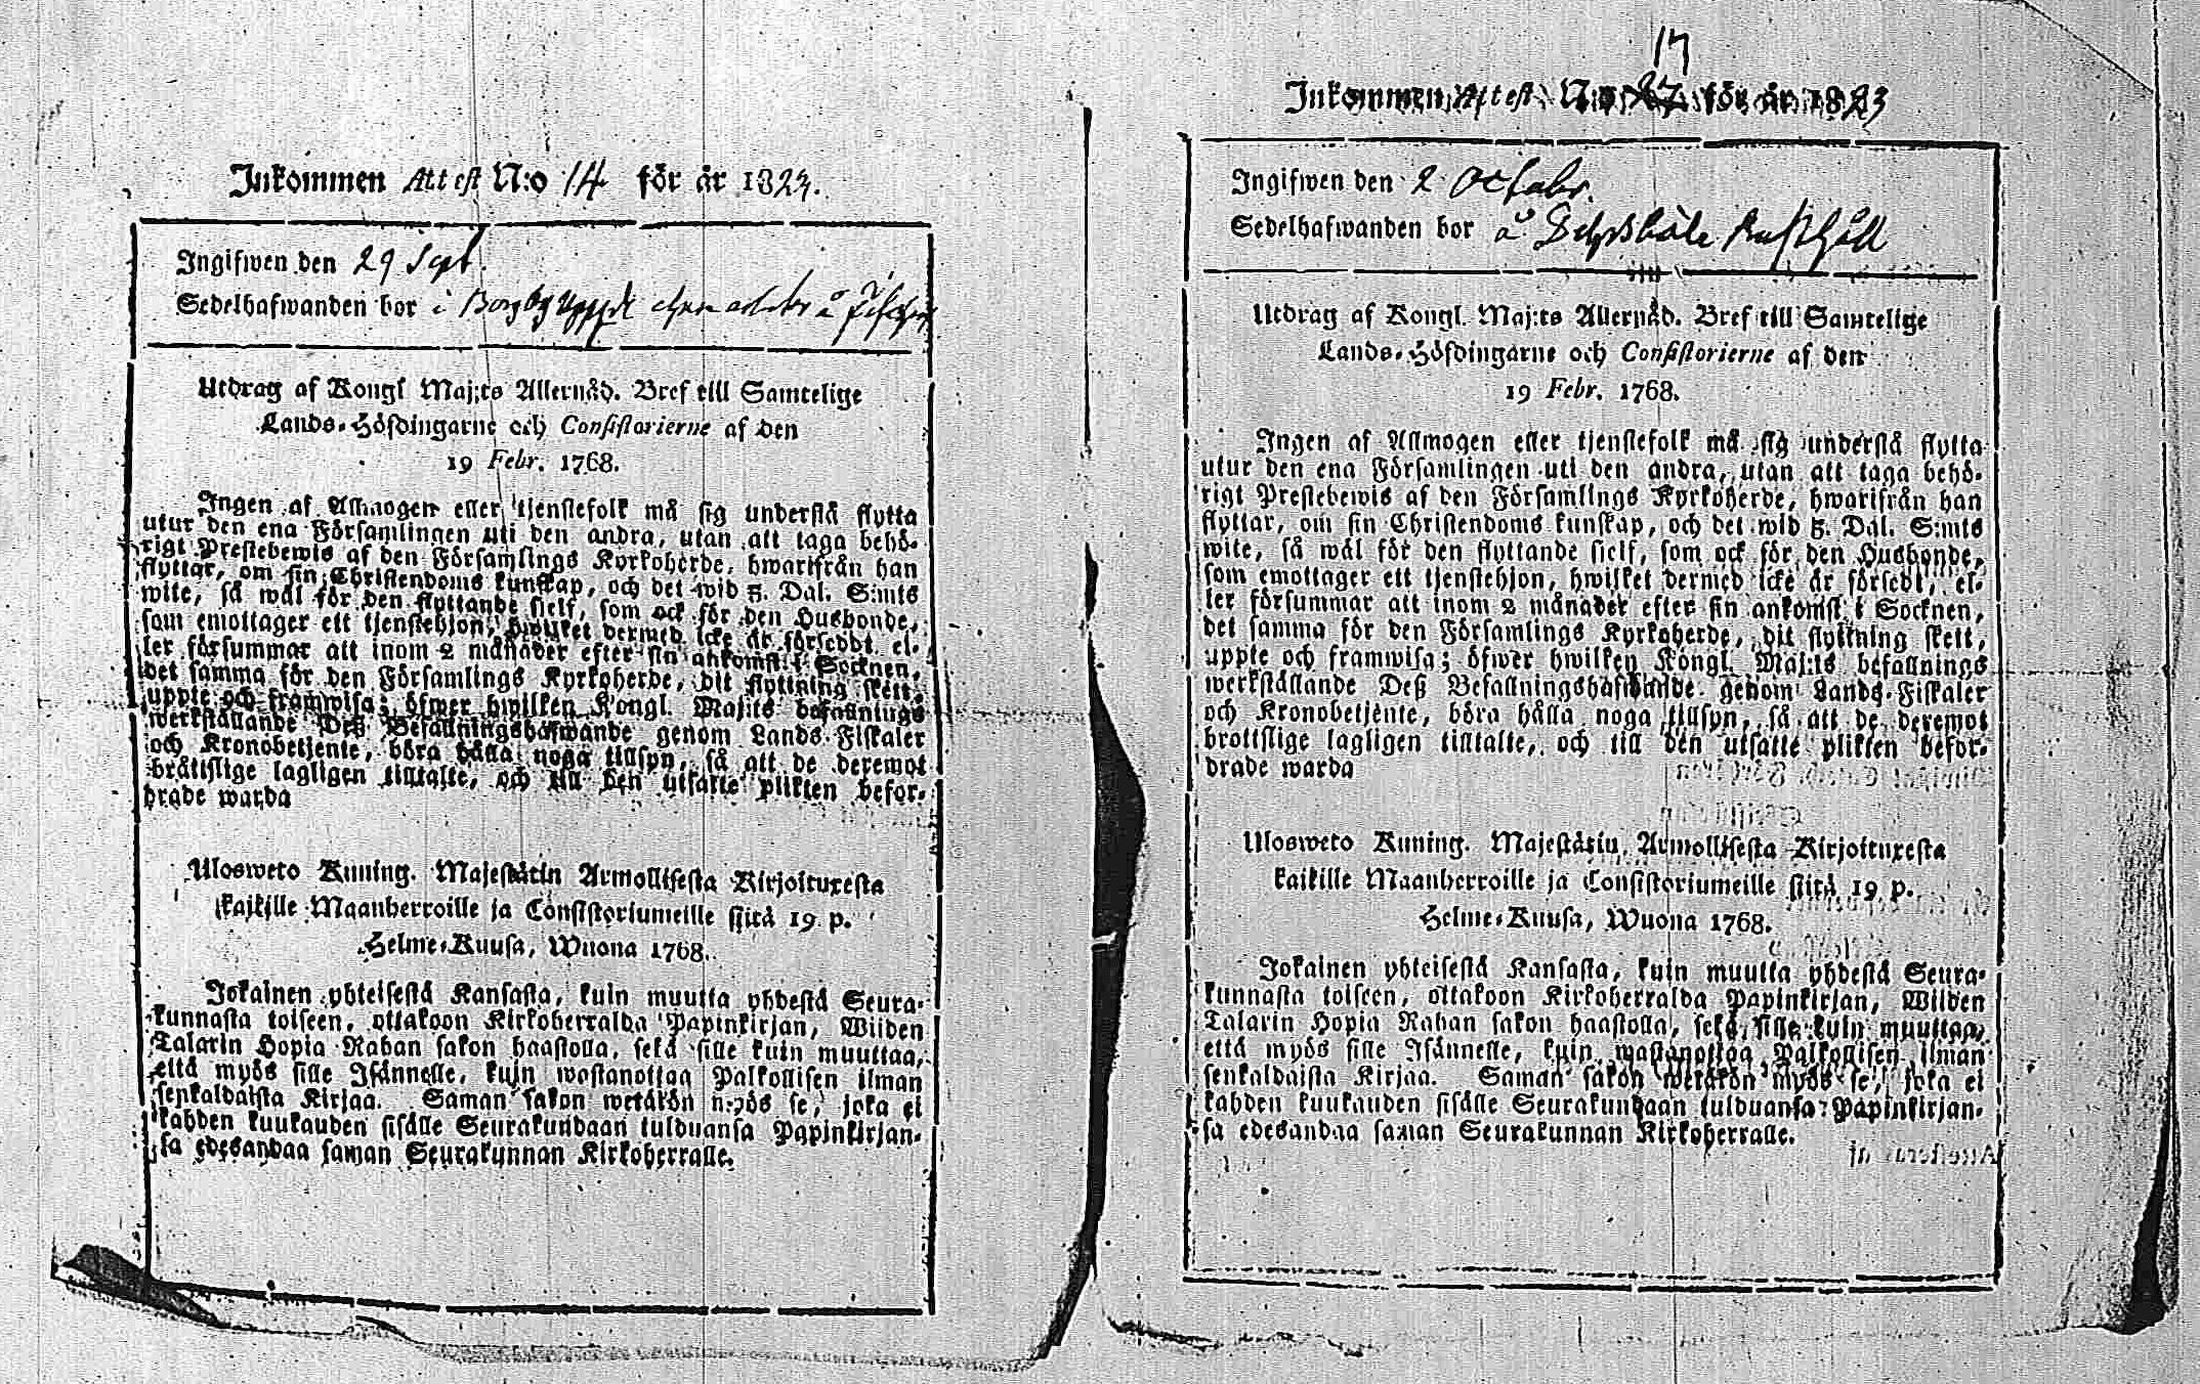 Inkommen Attest N:o 14 för år 1823.
Ingifwen den 29 Sept.
Sedelhafwanden bor i
Utdrag af Kongl Maj:ts Allernåd. Bref till Samtelige
Lands-Höfdingarne och Consistorierne af den
19 Febr. 1768.
Ingen af Allmogen eller tjenstefolk må sig understå flytta
utur den ena Församlingen uti den andra, utan att taga behö-
rigt Prestebewis af den Församlings Kyrkoherde, hwarifrån han
flyttar, om sin Christendoms kunskap, och det wid 5. Dal. S:mts
wite, så wäl för den flyttande sielf, som ock för den Husbonde,
som emottager ett tjenstehjon, hwilket dermed icke är försedt, el-
ler försummar att inom 2 månader efter sin ankomst i Socknen,
det samma för den Församlings Kyrkoherde, dit flyttning skett,
uppte och framwisa; öfwer hwilken Kongl. Maj:ts befallnings
werkställande Deß Befallningshafwande genom Lands-Fiskaler
och Kronobetjente, böra hålla noga tillsyn, så att de deremot
bråttslige lagligen tilltalte, och till den utsatte plikten befor-
drade warda
Ulosweto Kuning. Majestätin Armollisesta Kirjoituxesta
kaikille Maanherroille ja Consistoriumeille siitä 19 p.
Helme-Kuusa, Wuona 1768.
Jokainen yhteisestä Kansasta, kuin muutta yhdestä Seura-
kunnasta toiseen, ottakoon Kirkoherralda Papinkirjan, Wiiden
Talarin Hopia Rahan sakon haastolla, sekä sille kuin muuttaa,
että myös sille Isännelle, kuin wastanottaa Palkollisen ilman
senkaldaista Kirjaa. Saman sakon wetäkön myös se, joka ei
kahden kuukauden sisälle Seurakundaan tulduansa Papinkirjan-
sa edesandaa saman Seurakunnan Kirkoherralle.
17
Inkommen Attest N:o 27 för år 1823
Ingifwen den 2 Octobr.
Sedelhafwanden bor å Rusthåll
Utdrag af Kongl. Maj:ts Allernåd. Bref till Samtelige
Lands-Höfdingarne och Consistorierne af den
19 Febr. 1768.
Ingen af Allmogen eller tjenstefolk må sig understå flytta
utur den ena Församlingen uti den andra, utan att taga behö-
rigt Prestebewis af den Församlings Kyrkoherde, hwarifrån han
flyttar, om sin Christendoms kunskap, och det wid 5. Dal. S:mts
wite, så wäl för den flyttande sielf, som ock för den Husbonde,
som emottager ett tjenstehjon, hwilket dermed icke är försedt, el-
ler försummar att inom 2 månader efter sin ankomst i Socknen,
det samma för den Församlings Kyrkoherde, dit flyttning skett,
uppte och framwisa; öfwer hwilken Kongl. Maj:ts befallnings
werkställande Deß Befallningshafwande genom Lands-Fiskaler
och Kronobetjente, böra hålla noga tillsyn, så att de deremot
brottslige lagligen tilltalte, och till den utsatte plikten befor-
drade warda
Ulosweto Kuning. Majestätin Armollisesta Kirjoituxesta
kaikille Maanherroille ja Consistoriumeille siitä 19 p.
Helme-Kuusa, Wuona 1768.
Jokainen yhteisestä Kansasta, kuin muutta yhdestä Seura-
kunnasta toiseen, ottakoon Kirkoherralda Papinkirjan, Wiiden
Talarin Hopia Rahan sakon haastolla, sekä sille kuin muuttaa,
että myös sille Isännelle, kuin wastanottaa Palkollisen ilman
senkaldaista Kirjaa. Saman sakon wetäkön myös se, joka ei
kahden kuukauden sisälle Seurakundaan tulduansa Papinkirjan-
sa edesandaa saman Seurakunnan Kirkoherralle.